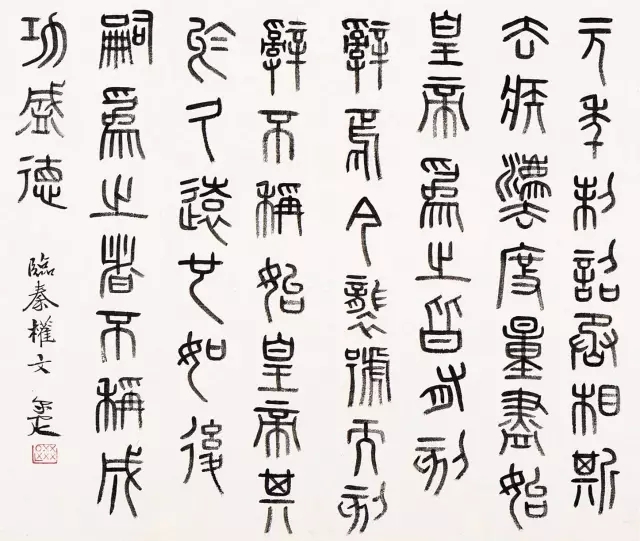 元年制詔丞相斯
去疾灋度量盡始
皇帝為之皆有刻
辭焉今襲號而刻
辭不稱始皇帝其
於久遠也如後
嗣為之者不稱成
功盛德
臨秦權文